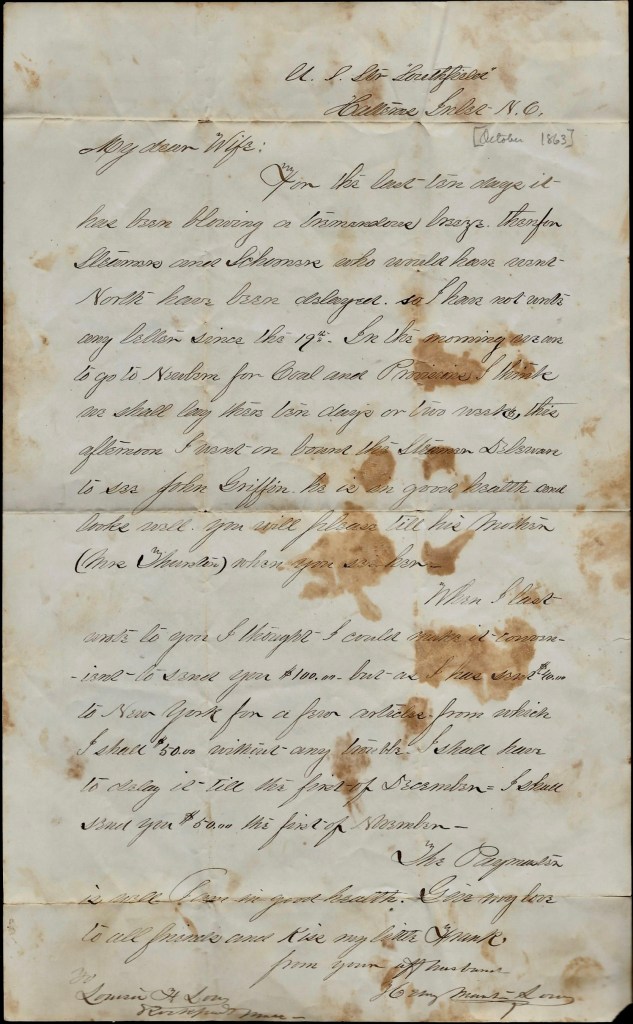 U. S. Str "Southfield"
Hatteras Inlet N. C.
[October 1863]
My dear Wife:
For the last ten days it
has been blowing a tremendous breeze. therefor
Steamers and Schoners who would have went
North have been delayed. so I have not wrote
any letter since the 19th. In the morning we are
to go to Newbern for Coal and Provisions I think
we shall lay there ten days or two weeks, this
afternoon I went on board the Steamer Delewan
to see John Griffin. He is in good health and
looks well. you will please tell his Mother
(Mrs Thurston) when you see her
When I last
wrote to you I thought I could make it conven-
-ient to send you $100.00 but as I has sent $40.00
to New York for a few articles from which
I shall $50.00 without any trouble. I shall have
to delay it till the first of December = I shall
send you $50.00 the first of November —
The Paymaster
is well I am in good health. Give my love
to all friends and Kiss my little Frank,
from your aff husband
To
Louisa H Low
Rockport Mass —